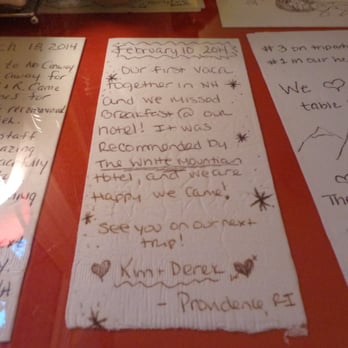 ch 18, 2014
to No. Conway
away for
+ K. Came
staff
azing
February 10 2014
Our first vaca
together in NH
and we missed
Breakfast @ our
hotel! It was
Recommended by
The White Mountain
Hotel, and we are
Happy we came!
See you on our next
trip!
Kim + Derek
- Providence, RI
#3 on tripad
#1 in our he
We
table
Th